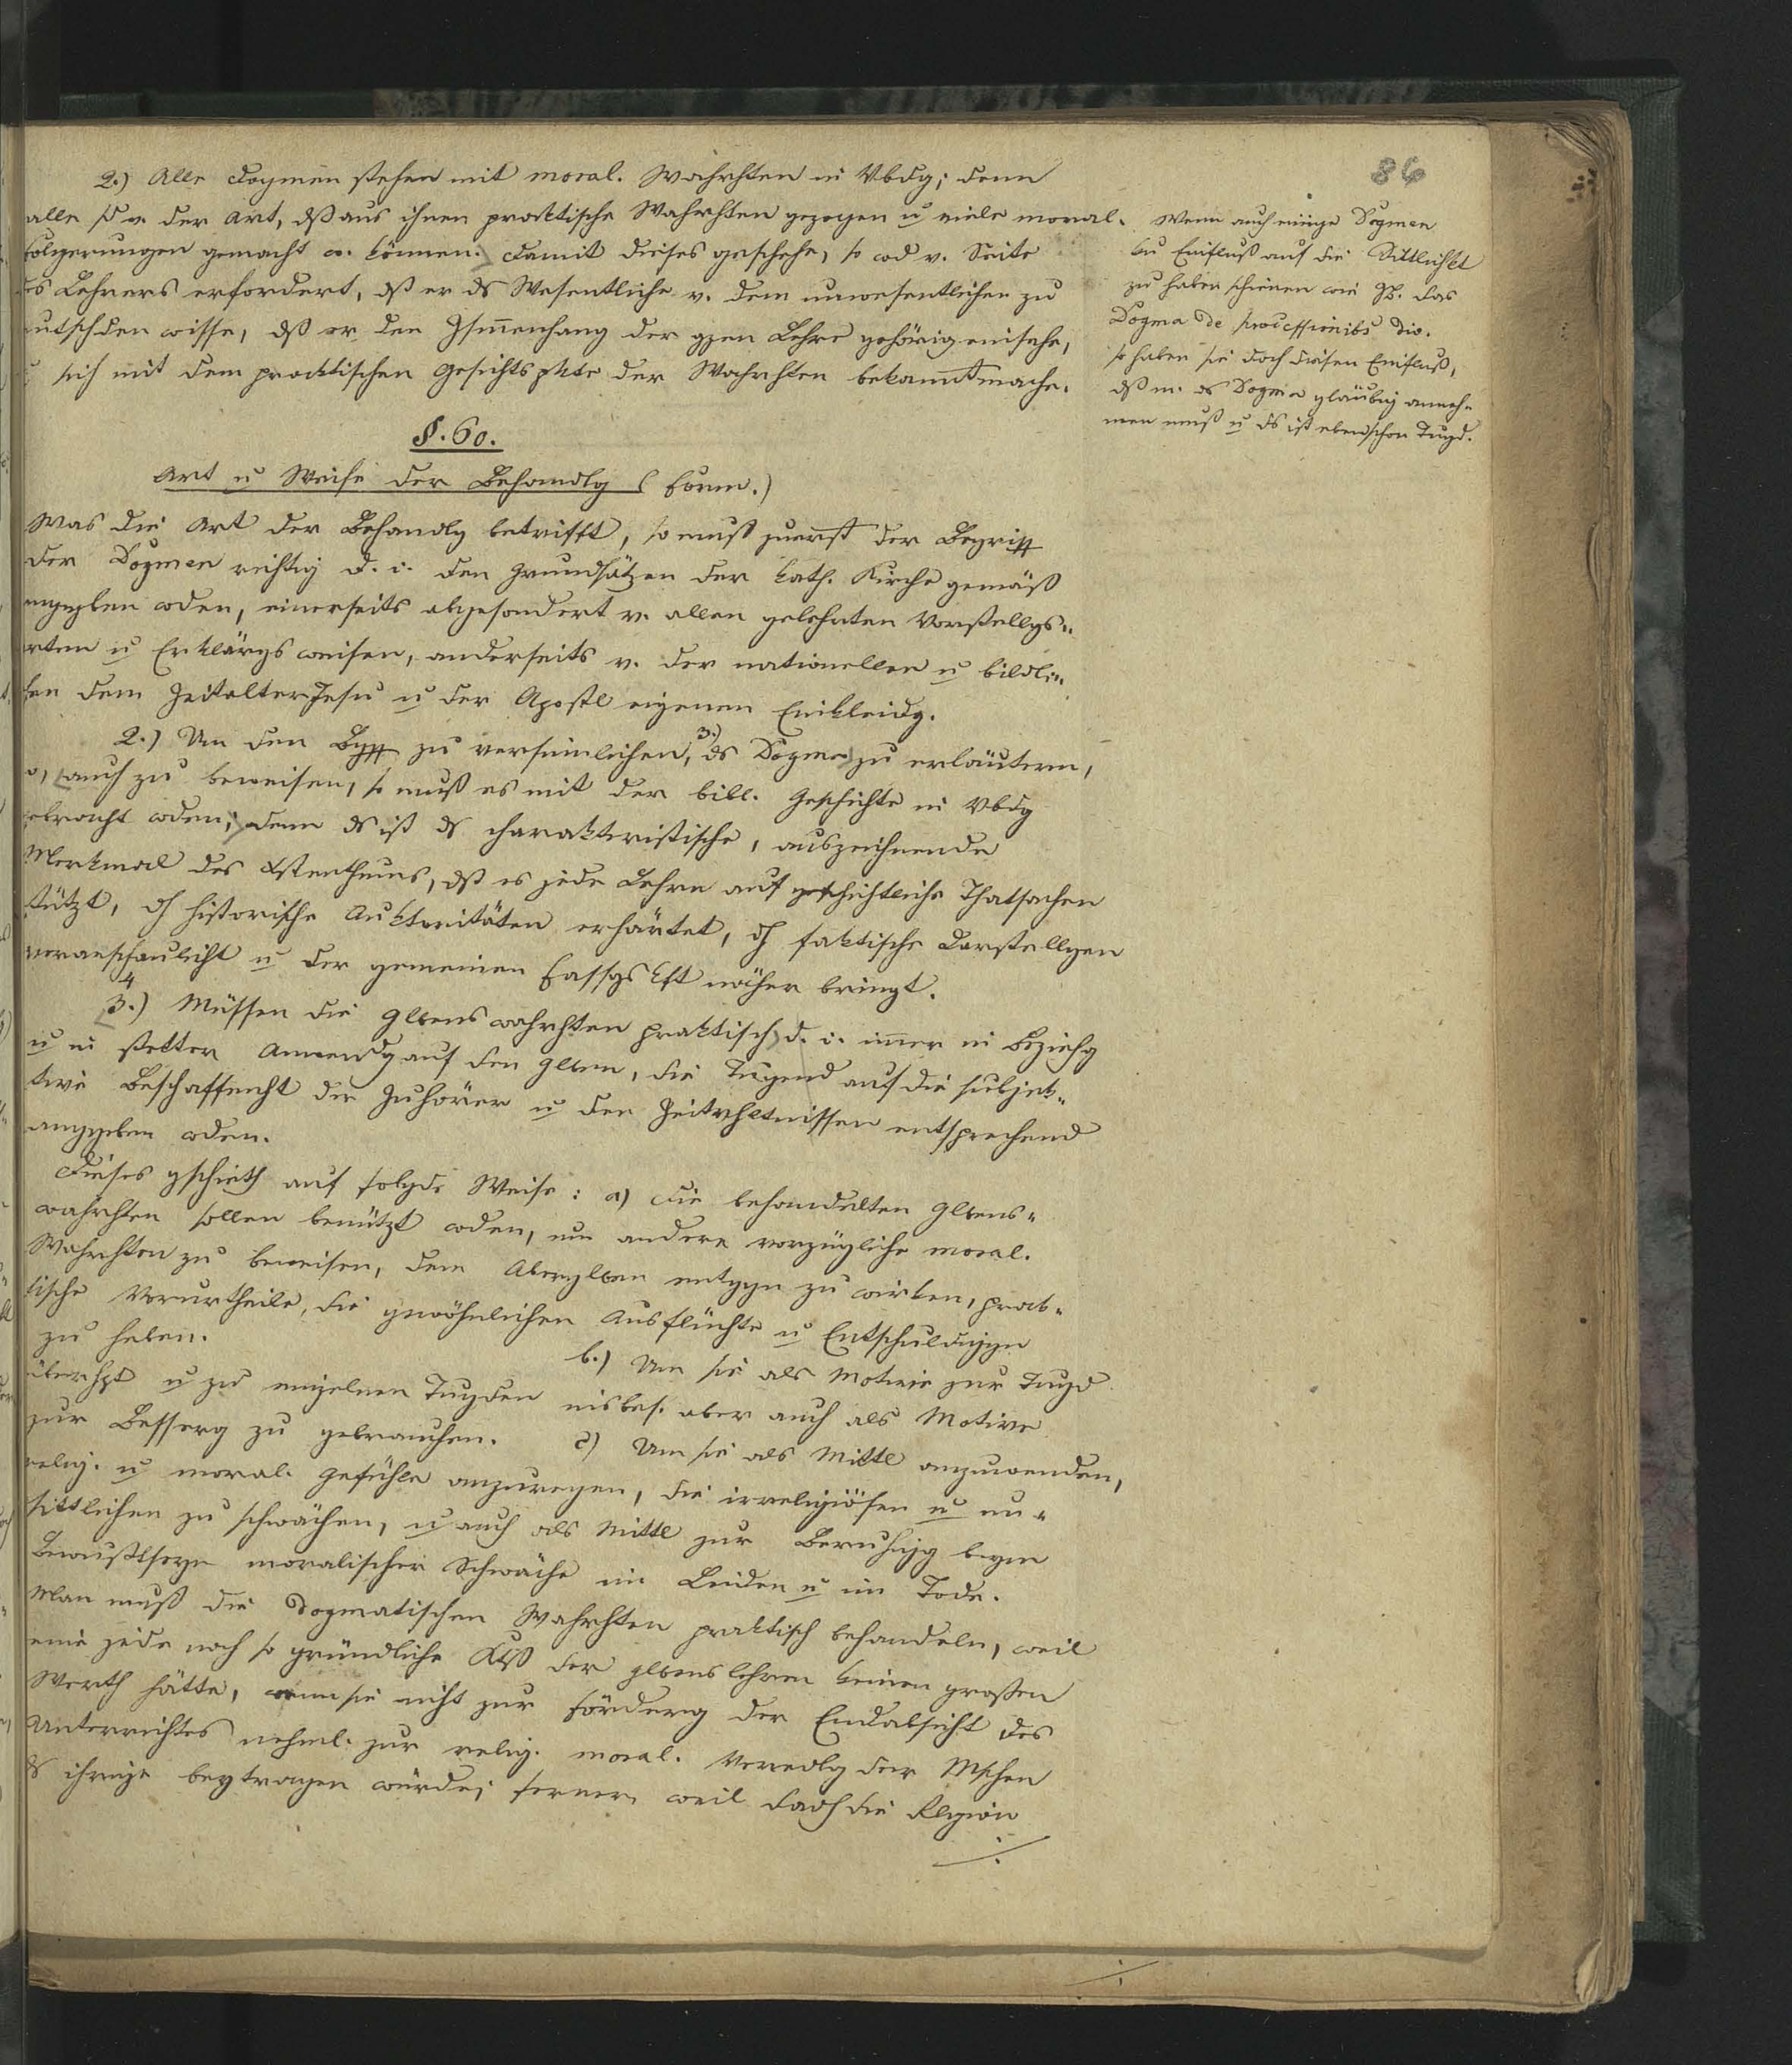 86
2.) Alle Dogmen stehen mit moral. Wahrhten in Vbdg; denn
alle sd v. der Art, dß aus ihnen praktische Wahrhten gezogen u viele moral.
folgerungen gemacht w. können. Damit dieses geschehe, so wd v. Seite
des Lehrers erfordert, dß er ds Wesentliche v. dem unwesentlichen zu
entschden wisse, dß er den Zsmenhang der gzen Lehre gehörig einsehe,
u sich mit dem practischen Gesichtspkte der Wahrhten bekanntmache.
Wenn auch einige Dogmen
kn Einfluß auf die Sittlichkt
zu haben scheinen wie zB. das
Dogma de processionibs div.
so haben sie doch diesen Einfluß,
dß m. ds Dogma gläubig anneh-
men muß u ds ist eben schon Tugd.
§. 60.
Art u Weise der Behandlg (Form.)
Was die Art der Behandlg betrifft, so muß zuerst der Begriff
der Dogmen richtig d. i. den Grundsätzen der kath. Kirche gemäß
angegeben wden, einerseits abgesondert v. allen gelehrten Vorstellgs-
arten u Erklärgsweisen, anderseits v. der nationellen u bildli-
chen dem Zeitalter Jesu u der Apostl eigenen Einkleidg.
2.) Um den Bgff zu versinnlichen, 3.) ds Dogma zu erläutern,
auch zu beweisen, so muß es mit der bibl. Geschichte in Vbdg
gebracht wden; denn ds ist ds charakteristische, auszeichnende
Merkmal des Xstenthums, dß es jede Lehre auf geschichtliche Thatsachen
stützt, dh historische Auktoritäten erhärtet, dh faktische Darstellgen
veranschaulicht u der gemeinen Fassgskft näher bringt.
4 3.) Müssen die Glbenswahrhten praktisch d. i. immer in Beziehg
u in stetter Anwendg auf den Glben, die Tugend auf die subjek-
tive Beschaffenht der Zuhörer u den Zeitvhltnissen entsprechend
angegeben wden.
Dieses gschieht auf folgde Weise: a) Die behandelten Glbens-
wahrhten sollen benützt wden, um andere vorzügliche moral.
Wahrhten zu beweisen, dem Aberglben entggn zu wirken, prak-
tische Vorurtheile, die gewöhnlichen Ausflüchte u Entschuldiggn
zu heben. b.) Um sie als Motive zur Tugd
überhpt u zu einzelnen Tugden insbes. aber auch als Motive
zur Besserg zu gebrauchen. c) Um sie als Mittl anzuwenden,
relig. u moral. Gefühle anzuregen, die irreligiösen u un-
sittlichen zu schwächen, u auch als Mittl zur Beruhigg beym
Bewußtseyn moralischer Schwäche im Leiden u im Tode.
Man muß die dogmatischen Wahrhten praktisch behandeln, weil
eine jede noch so gründliche der Glbenslehren keinen großen
Werth hätte, wenn sie nicht zur Förderg der Endabsicht des
Unterrichtes nehml. zur relig. moral. Veredlg der Mschen
ds ihrige beytragen würde; ferner weil dadh die Rlgion